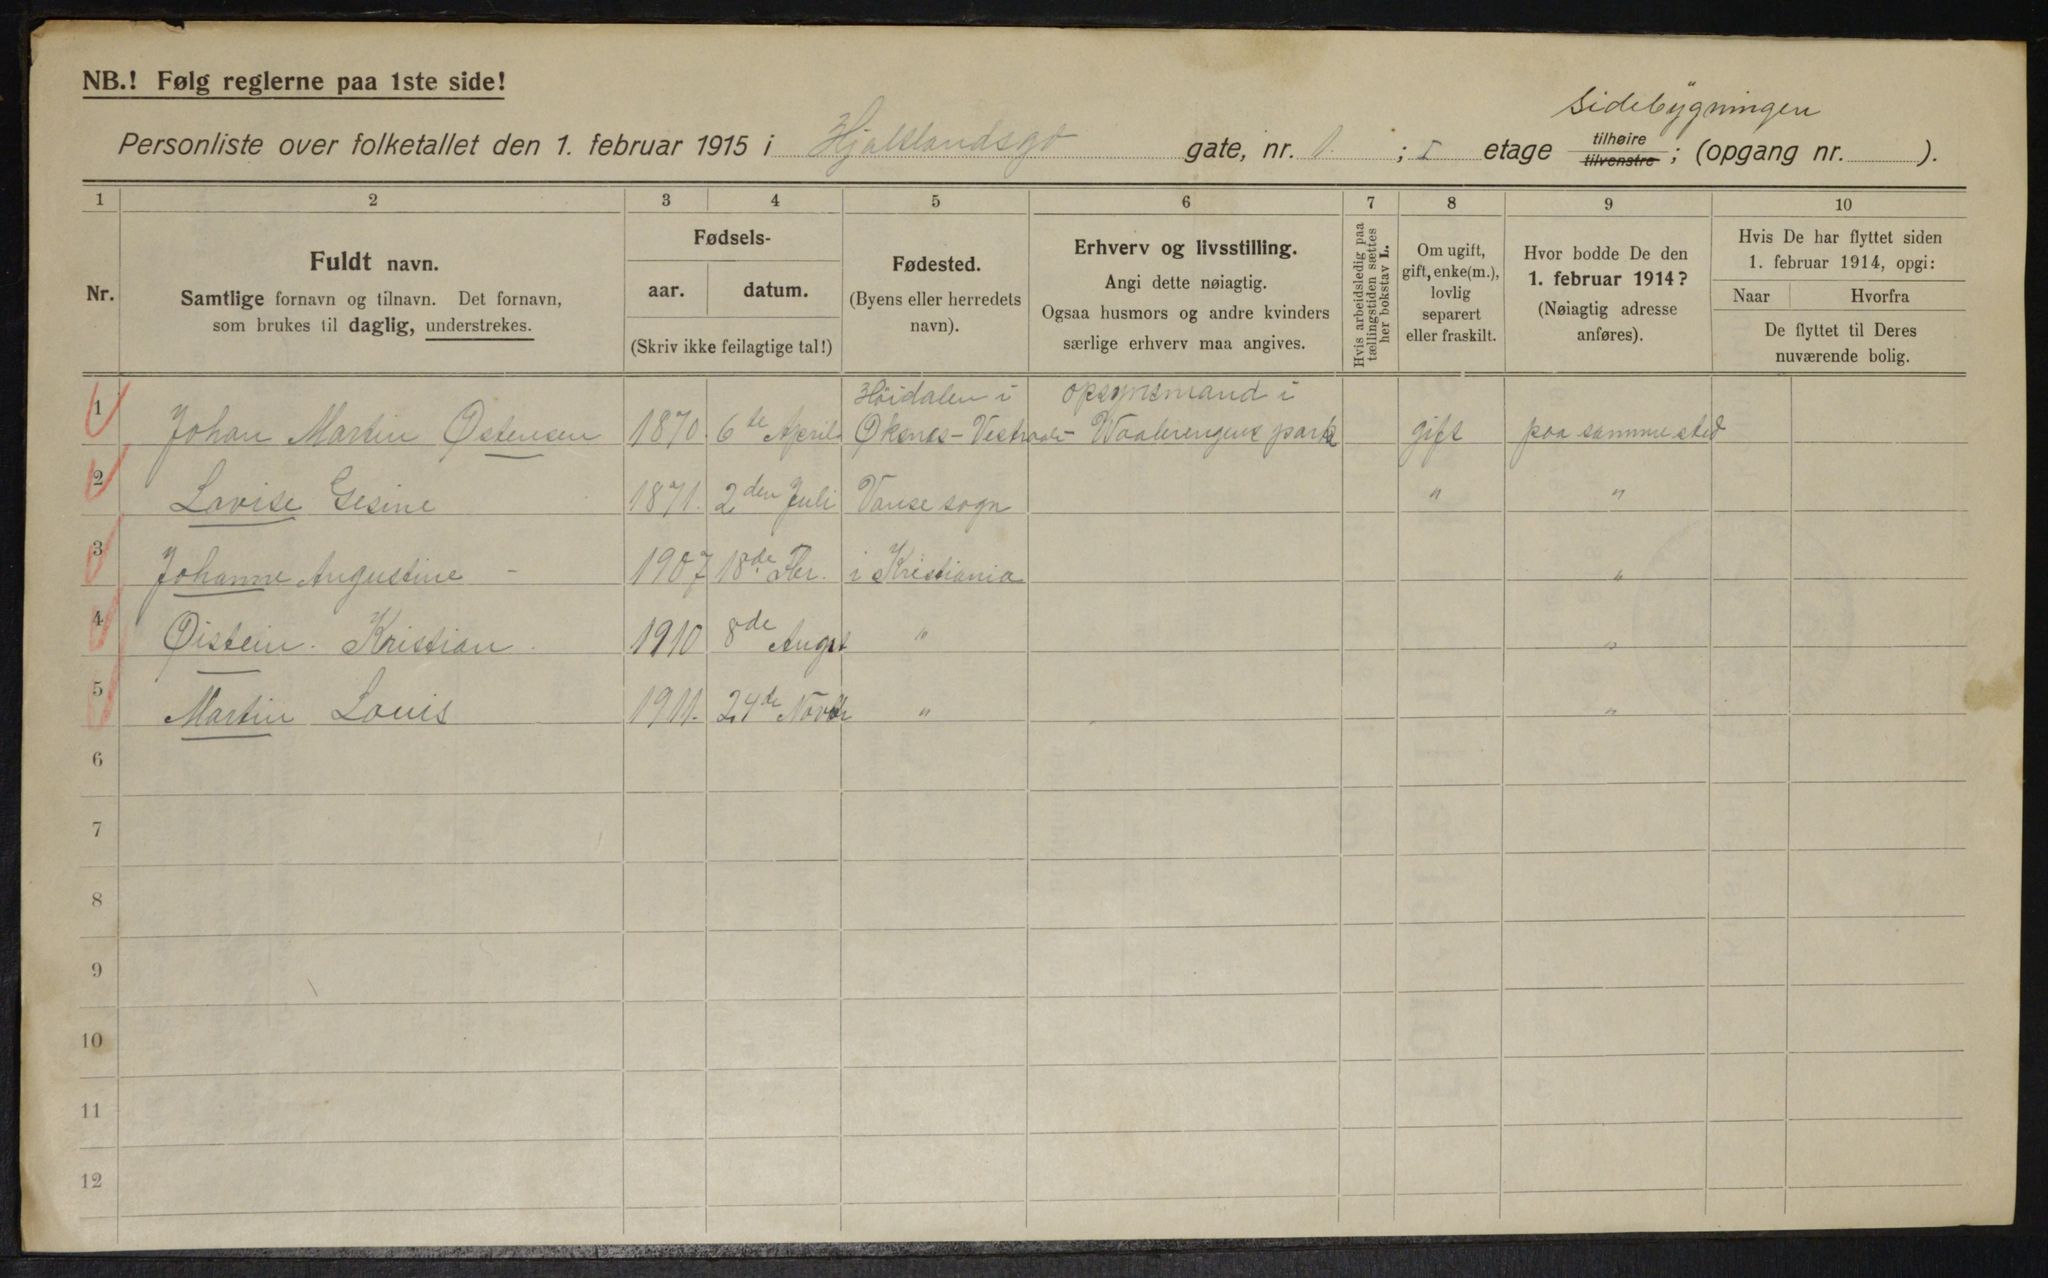 NB.! Følg reglerne paa 1ste side!
Sidebygningen
Personliste over folketallet den 1. februar 1915 i Hjaltlandsgt gate, nr. 1. ; I etage tilhøire tilvenstre ; (opgang nr. ).
1 2 3 4 5 6 7 8 9 10
Nr.
Fuldt navn.
Samtlige fornavn og tilnavn. Det fornavn,
som brukes til daglig, understrekes.
Fødsels-
aar. datum.
(Skriv ikke feilagtige tal!)
Fødested.
(Byens eller herredets
navn).
Erhverv og livsstilling.
Angi dette nøiagtig.
Ogsaa husmors og andre kvinders
særlige erhverv maa angives.
Hvis arbeidsledig paa
tællingstiden sættes
her bokstav L.
Om ugift,
gift, enke(m.),
lovlig
separert
eller fraskilt.
Hvor bodde De den
1. februar 1914?
(Nøiagtig adresse
anføres).
Hvis De har flyttet siden
1. februar 1914, opgi:
Naar Hvorfra
De flyttet til Deres
nuværende bolig.
Höidalen i opsynsmand i
1 Johan Martin Østensen 1870. 6te April Øksnes- Vaalerengens park gift paa samme sted
2 Lovise Gesine 1871. 2den Juli Vanse sogn " "
3 Johanne Augustine - 1907 18de i Kristiania "
4 Øistein. Kristian. 1910 8de Augst " "
5 Martin Louis 1911. 24de Novbr " "
6
7
8
9
10
11
12